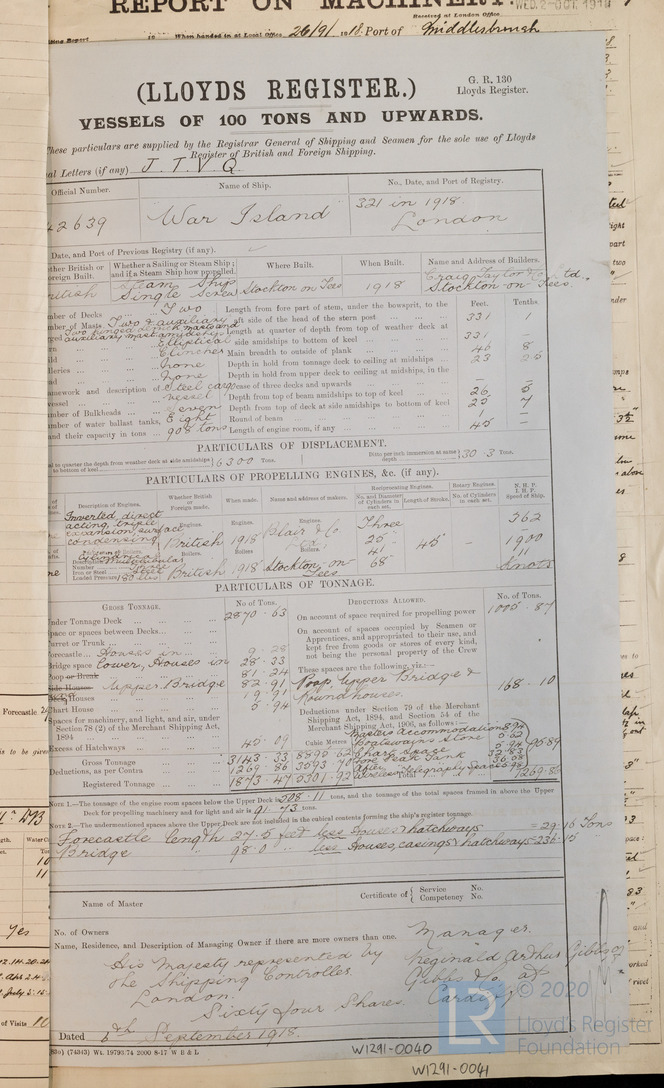 REPORT ON MACHINERY.
WED. 2-OCT. 1918
Received at London Office
When handed in at Local Office 26/9/1918. Port of Middlesbrough
(LLOYDS REGISTER.)
G. R. 130
Lloyds Register.
VESSELS OF 100 TONS AND UPWARDS.
These particulars are supplied by the Registrar General of Shipping and Seamen for the sole use of Lloyds
Register of British and Foreign Shipping.
al Letters (if any) J. T. V. Q.
Official Number. Name of Ship. No., Date, and Port of Registry.
42639 "War Island" 321 in 1918.
London
Date, and Port of Previous Registry (if any).
ther British or Foreign Built. Whether a Sailing or Steam Ship; and if a Steam Ship how propelled. Where Built. When Built. Name and Address of Builders.
British Steam Ship Single Screw Stockton on Tees 1918 Craig Taylor & Co. Ltd. Stockton on Tees.
Feet. Tenths
mber of Decks Two
Length from fore part of stem, under the bowsprit, to the aft side of the head of the stern post 331 1
Length at quarter of depth from top of weather deck at side amidships to bottom of keel 331 –
Elliptical
Clincher
Main breadth to outside of plank 46 8
none
Depth in hold from tonnage deck to ceiling at midships 23 25
none
Depth in hold from upper deck to ceiling at midships, in the case of three decks and upwards – –
amework and description of vessel Steel cargo vessel
Depth from top of beam amidships to top of keel 26 5
mber of Bulkheads Seven
Depth from top of deck at side amidships to bottom of keel 25 7
mber of water ballast tanks, Eight
Round of beam 1 –
and their capacity in tons 908 tons
Length of engine room, if any 45 –
PARTICULARS OF DISPLACEMENT.
al to quarter the depth from weather deck at side amidships to bottom of keel 6300 Tons. Ditto per inch immersion at same depth 30.3 Tons.
PARTICULARS OF PROPELLING ENGINES, &c. (if any).
Description of Engines. Whether British or Foreign made. When made. Name and address of makers. Reciprocating Engines. Rotary Engines. N. H. P.
No. and Diameter of Cylinders in each set. Length of Stroke. No. of Cylinders in each set. I. H. P. Speed of Ship.
Inverted direct acting, triple expansion, surface condensing
Engines. British Engines. 1918 Engines. Blair & Co. Ltd. Three 25" 41" 68" 45" – 362 1900 11 knots
Cylindrical Multitubular
Number
Iron or Steel Steel
Loaded Pressure 180 lbs
Boilers. British Boilers. 1918 Boilers. Stockton-on-Tees
PARTICULARS OF TONNAGE.
GROSS TONNAGE. No of Tons. DEDUCTIONS ALLOWED. No. of Tons.
Under Tonnage Deck 2870.63
On account of space required for propelling power 1005.87
Space or spaces between Decks
Turret or Trunk
Forecastle Houses in 9.28
On account of spaces occupied by Seamen or Apprentices, and appropriated to their use, and kept free from goods or stores of every kind, not being the personal property of the Crew
Bridge space Lower, Houses in 28.33
Poop or Break 81.24
These spaces are the following, viz:—
Side Houses Upper Bridge 82.91
Poop, Upper Bridge & Roundhouses. 168.10
Houses 19.91
Chart House 5.94
Spaces for machinery, and light, and air, under Section 78 (2) of the Merchant Shipping Act, 1894
Excess of Hatchways 45.09
Deductions under Section 79 of the Merchant Shipping Act, 1894, and Section 54 of the Merchant Shipping Act, 1906, as follows:—
Masters accommodation 8.94
Boatswains store 5.62
Chart space 5.94
Fore Peak Tank 32.83
After " " 36.08
Wireless telegraphy space 95.89
Cubic Metres
Gross Tonnage 3143.33 8895.62
Deductions, as per Contra 1269.86 3593.70
Registered Tonnage 1873.47 5301.92
Total 1269.86
NOTE 1.—The tonnage of the engine room spaces below the Upper Deck is 308.11 tons, and the tonnage of the total spaces framed in above the Upper
Deck for propelling machinery and for light and air is 91.73 tons.
NOTE 2.—The undermentioned spaces above the Upper Deck are not included in the cubical contents forming the ship's register tonnage:
Forecastle length 27.5 feet less Houses & hatchways = 29.16 Tons
Bridge " 98.0 " less Houses, casings & hatchways = 236.15 "
Name of Master
Certificate of { Service No.
Competency No.
No. of Owners
Name, Residence, and Description of Managing Owner if there are more owners than one.
Manager.
His Majesty represented by Reginald Arthur Gibbs of
the Shipping Controller. Gibbs & Co. at
London. Cardiff
Sixty four Shares.
Dated 6th September 1918.
(74343) Wt. 19793/74 2000 8-17 W B & L
W1291-0040
W1291-0041
© 2020
LR
Lloyd's Register
Foundation